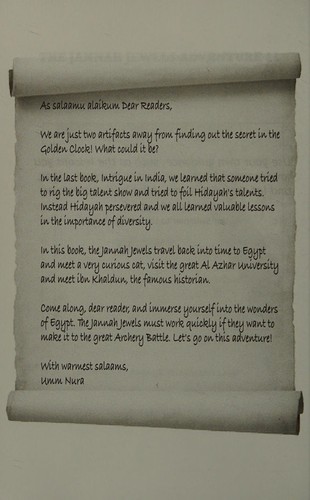 As salaamu alaikum Dear Readers,
We are just two artifacts away from finding out the secret in the
Golden Clock! What could it be?
In the last book, Intrigue in India, we learned that someone tried
to rig the big talent show and tried to foil Hidayah's talents.
Instead Hidayah persevered and we all learned valuable lessons
in the importance of diversity.
In this book, the Jannah Jewels travel back into time to Egypt
and meet a very curious cat, visit the great Al Azhar University
and meet ibn Khaldun, the famous historian.
Come along, dear reader, and immerse yourself into the wonders
of Egypt. The Jannah Jewels must work quickly if they want to
make it to the great Archery Battle. Let's go on this adventure!
With warmest salaams,
Umm Nura